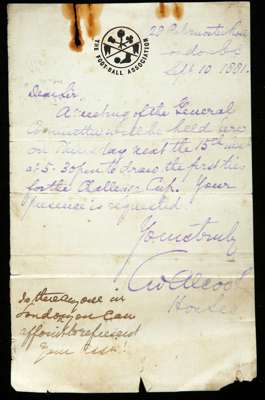 THE FOOT-BALL ASSOCIATION
28 Paternoster Row
London E.C.
Sept 10 1881.
Dear Sir,
A meeting of the General
Committee will be held here
on Thursday next the 15th
at 5.30 pm to draw the first ties
for the Challenge Cup. Your
presence is requested
Yours truly
C W Alcock
Hon Sec
Is there any one in
London you can
appoint to represent
Your